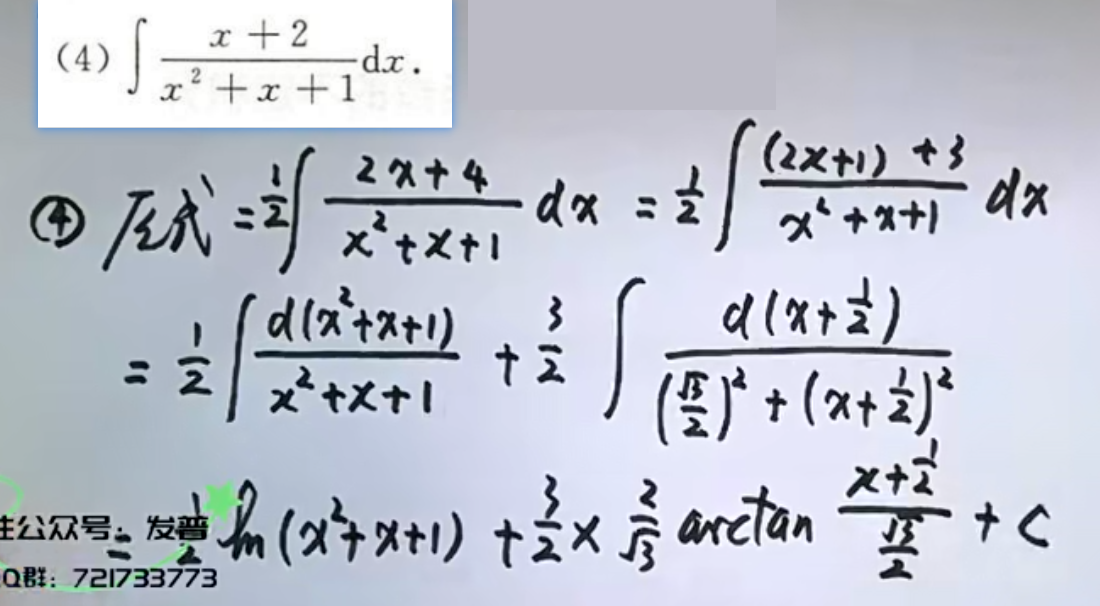 (4) ∫ (x + 2)/(x² + x + 1) dx.
④ 原式 = 1/2 ∫ (2x+4)/(x²+x+1) dx = 1/2 ∫ ((2x+1)+3)/(x²+x+1) dx
= 1/2 ∫ d(x²+x+1)/(x²+x+1) + 3/2 ∫ d(x+1/2)/((√3/2)² + (x+1/2)²)
= 1/2 ln(x²+x+1) + 3/2 × 2/√3 arctan (x+1/2)/(√3/2) + C
公众号：发普
Q群：721733773